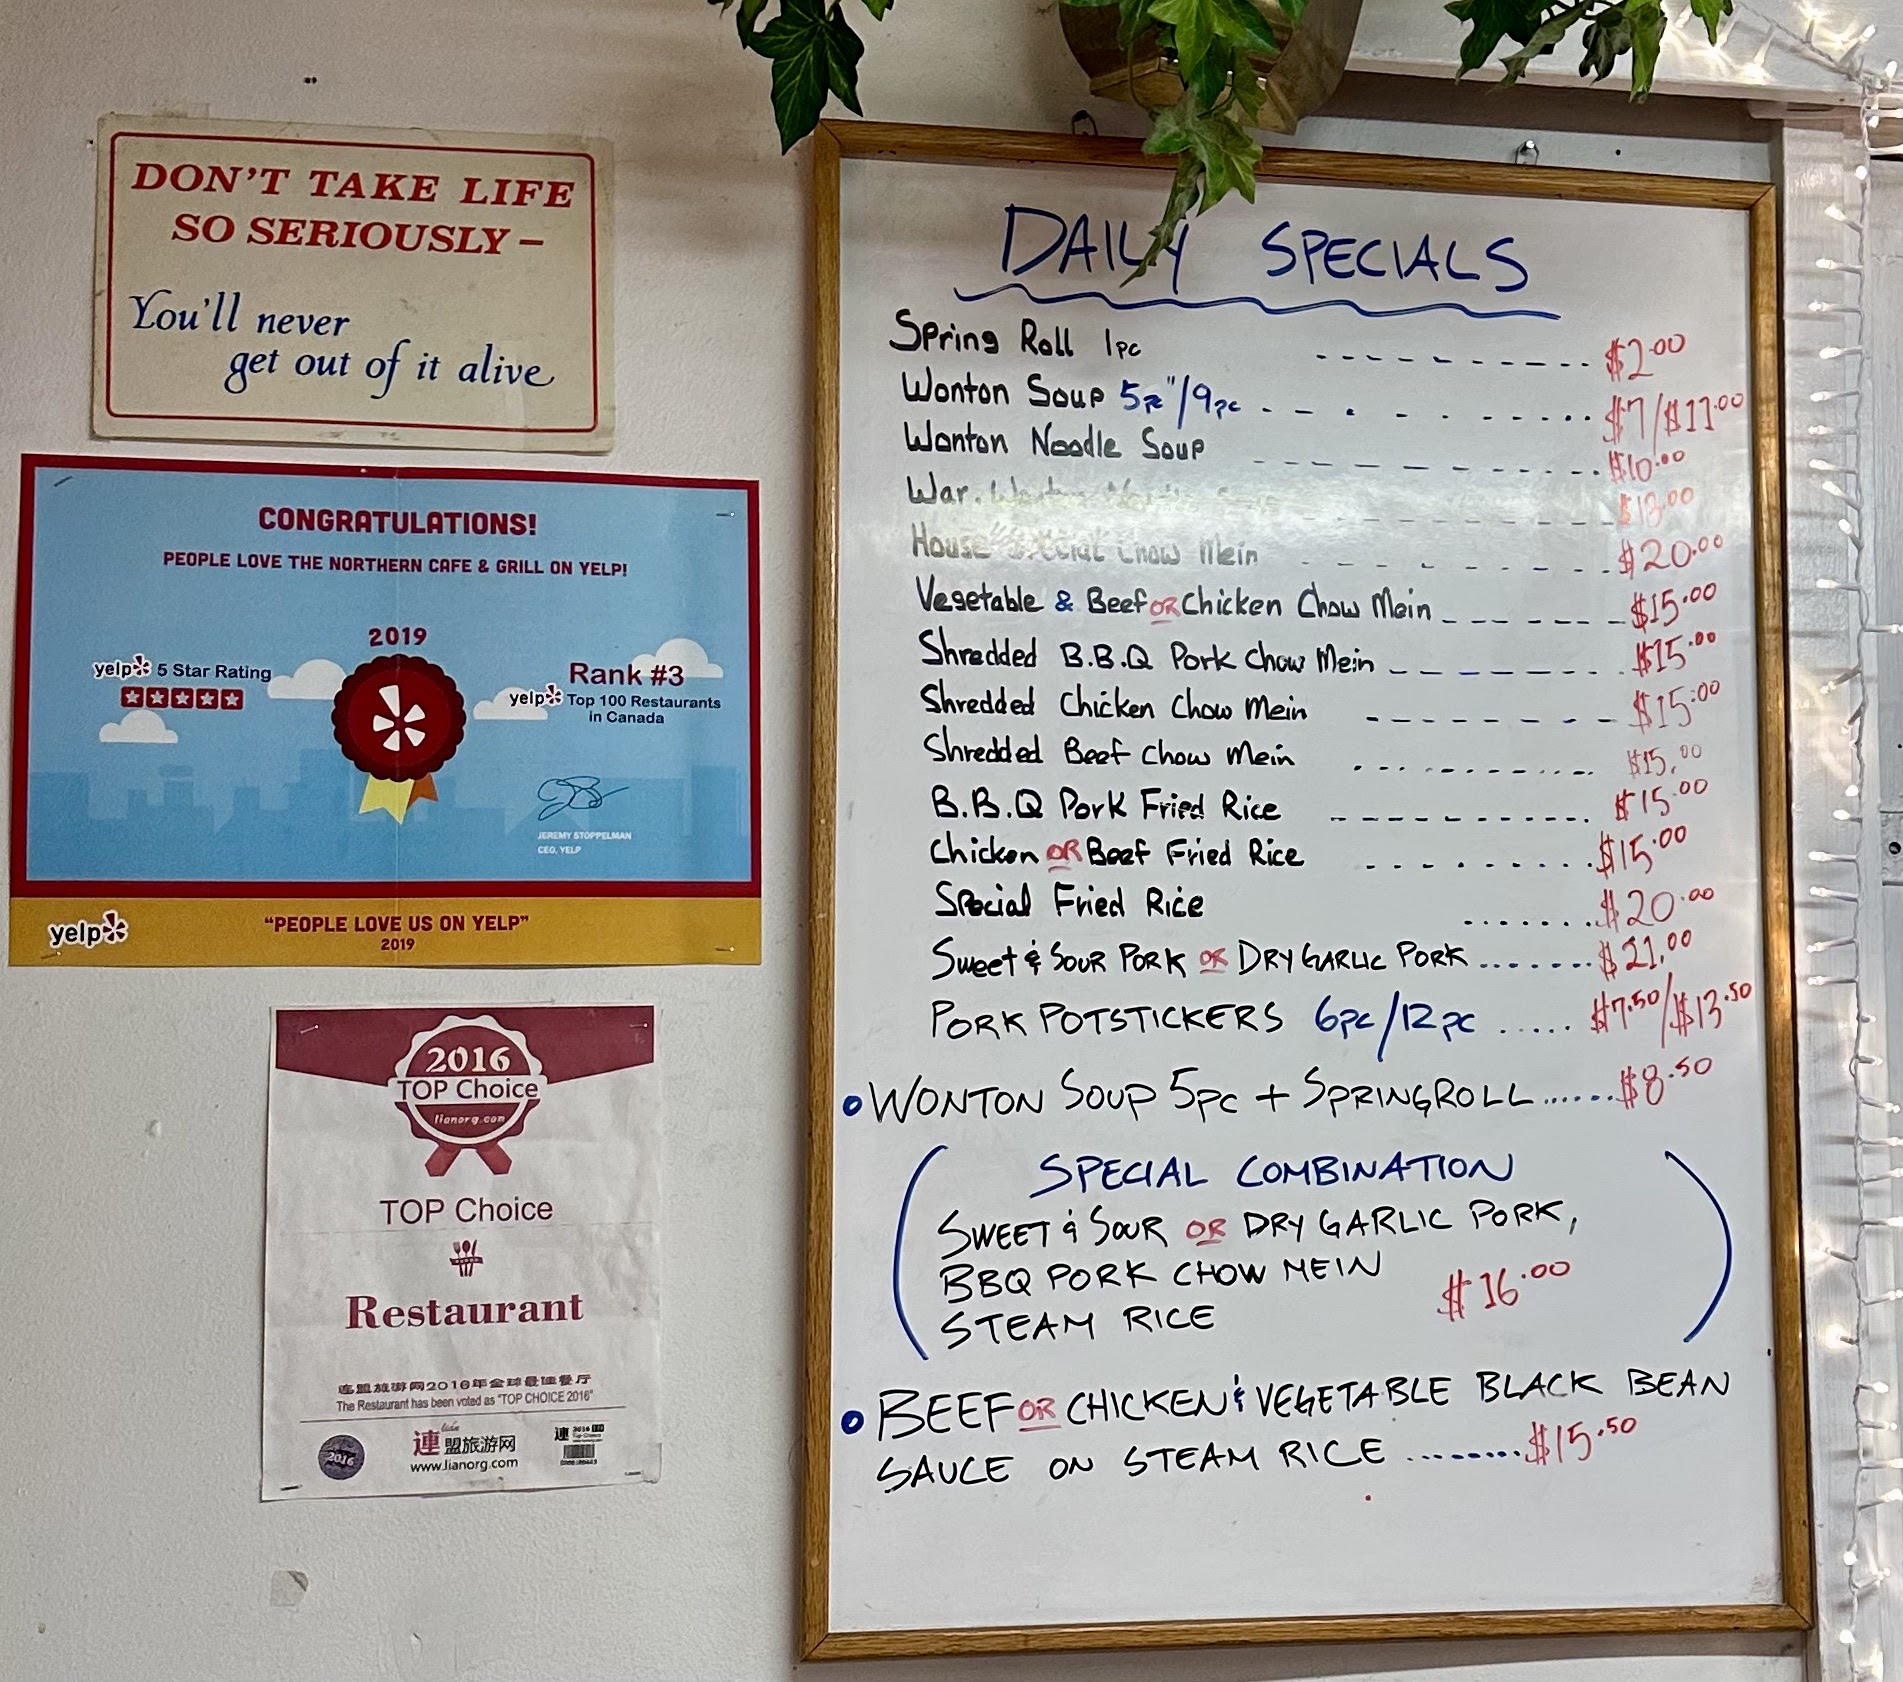 DON'T TAKE LIFE
SO SERIOUSLY –
You'll never
get out of it alive
CONGRATULATIONS!
PEOPLE LOVE THE NORTHERN CAFE & GRILL ON YELP!
2019
yelp 5 Star Rating
Rank #3
yelp Top 100 Restaurants
in Canada
JEREMY STOPPELMAN
CEO, YELP
yelp
"PEOPLE LOVE US ON YELP"
2019
2016
TOP Choice
lianorg.com
TOP Choice
Restaurant
连盟旅游网2016年全球最佳餐厅
The Restaurant has been voted as "TOP CHOICE 2016"
2016
連盟旅游网
www.lianorg.com
連 2016
DAILY SPECIALS
Spring Roll 1pc ---------- $2.00
Wonton Soup 5pc"/9pc ---------- $7/$11.00
Wonton Noodle Soup ---------- $10.00
War. Wonton ---------- $13.00
House Special Chow Mein ---------- $20.00
Vegetable & Beef OR Chicken Chow Mein ------- $15.00
Shredded B.B.Q Pork Chow Mein ------- $15.00
Shredded Chicken Chow Mein -------- $15.00
Shredded Beef Chow Mein .......... $15.00
B.B.Q Pork Fried Rice ---------- $15.00
Chicken OR Beef Fried Rice ......... $15.00
Special Fried Rice ....... $20.00
Sweet & SOUR PORK OR DRY GARLIC PORK ....... $21.00
PORK POTSTICKERS 6pc/12pc ..... $7.50/$13.50
• WONTON SOUP 5pc + SPRINGROLL ...... $8.50
SPECIAL COMBINATION
SWEET & SOUR OR DRY GARLIC PORK,
BBQ PORK CHOW MEIN
$16.00
STEAM RICE
• BEEF OR CHICKEN & VEGETABLE BLACK BEAN
SAUCE ON STEAM RICE ........ $15.50